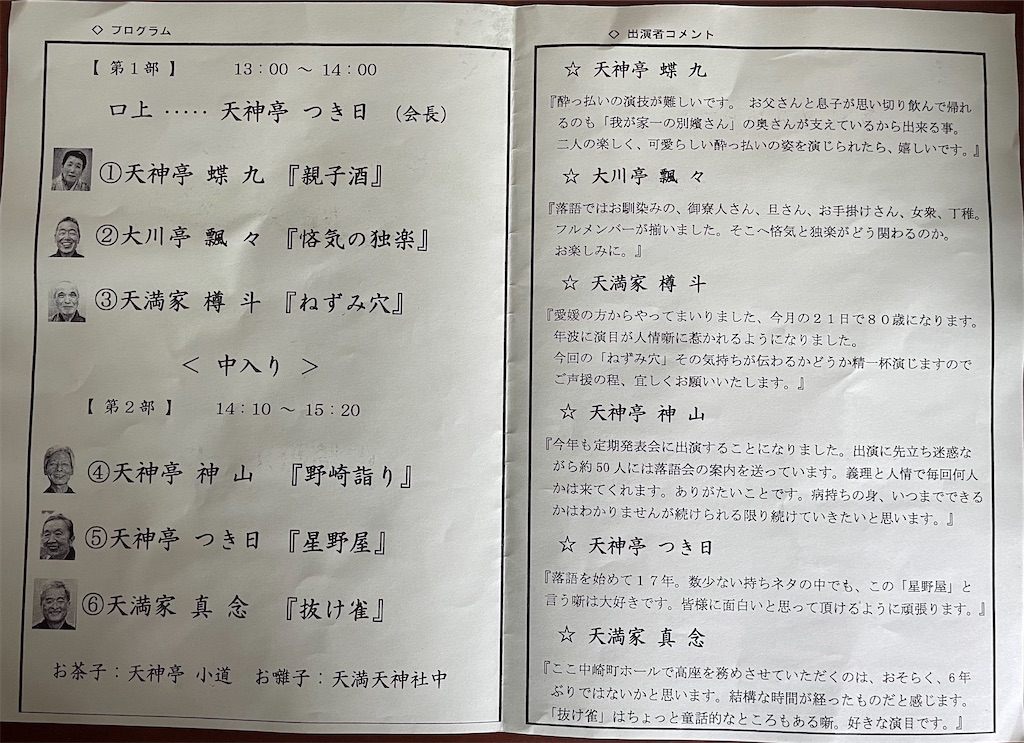 ◇ プログラム
【 第１部 】 13：00 ～ 14：00
口上 ‥‥‥ 天神亭 つき日 （会長）
①天神亭 蝶 九 『親子酒』
②大川亭 飄 々 『悋気の独楽』
③天満家 樽 斗 『ねずみ穴』
＜ 中入り ＞
【 第２部 】 14：10 ～ 15：20
④天神亭 神 山 『野崎詣り』
⑤天神亭 つき日 『星野屋』
⑥天満家 真 念 『抜け雀』
お茶子：天神亭 小道 お囃子：天満天神社中
◇ 出演者コメント
☆ 天神亭 蝶 九
『酔っ払いの演技が難しいです。 お父さんと息子が思い切り飲んで帰れ
るのも「我が家一の別嬪さん」の奥さんが支えているから出来る事。
二人の楽しく、可愛らしい酔っ払いの姿を演じられたら、嬉しいです。』
☆ 大川亭 飄 々
『落語ではお馴染みの、御寮人さん、旦さん、お手掛けさん、女衆、丁稚。
フルメンバーが揃いました。そこへ悋気と独楽がどう関わるのか。
お楽しみに。』
☆ 天満家 樽 斗
『愛媛の方からやってまいりました、今月の２１日で８０歳になります。
年波に演目が人情噺に惹かれるようになりました。
今回の「ねずみ穴」その気持ちが伝わるかどうか精一杯演じますので
ご声援の程、宜しくお願いいたします。』
☆ 天神亭 神 山
『今年も定期発表会に出演することになりました。出演に先立ち迷惑な
がら約 50 人には落語会の案内を送っています。義理と人情で毎回何人
かは来てくれます。ありがたいことです。病持ちの身、いつまでできる
かはわかりませんが続けられる限り続けていきたいと思います。』
☆ 天神亭 つき日
『落語を始めて１７年。数少ない持ちネタの中でも、この「星野屋」と
言う噺は大好きです。皆様に面白いと思って頂けるように頑張ります。』
☆ 天満家 真 念
『ここ中崎町ホールで高座を務めさせていただくのは、おそらく、６年
ぶりではないかと思います。結構な時間が経ったものだと感じます。
「抜け雀」はちょっと童話的なところもある噺。好きな演目です。』